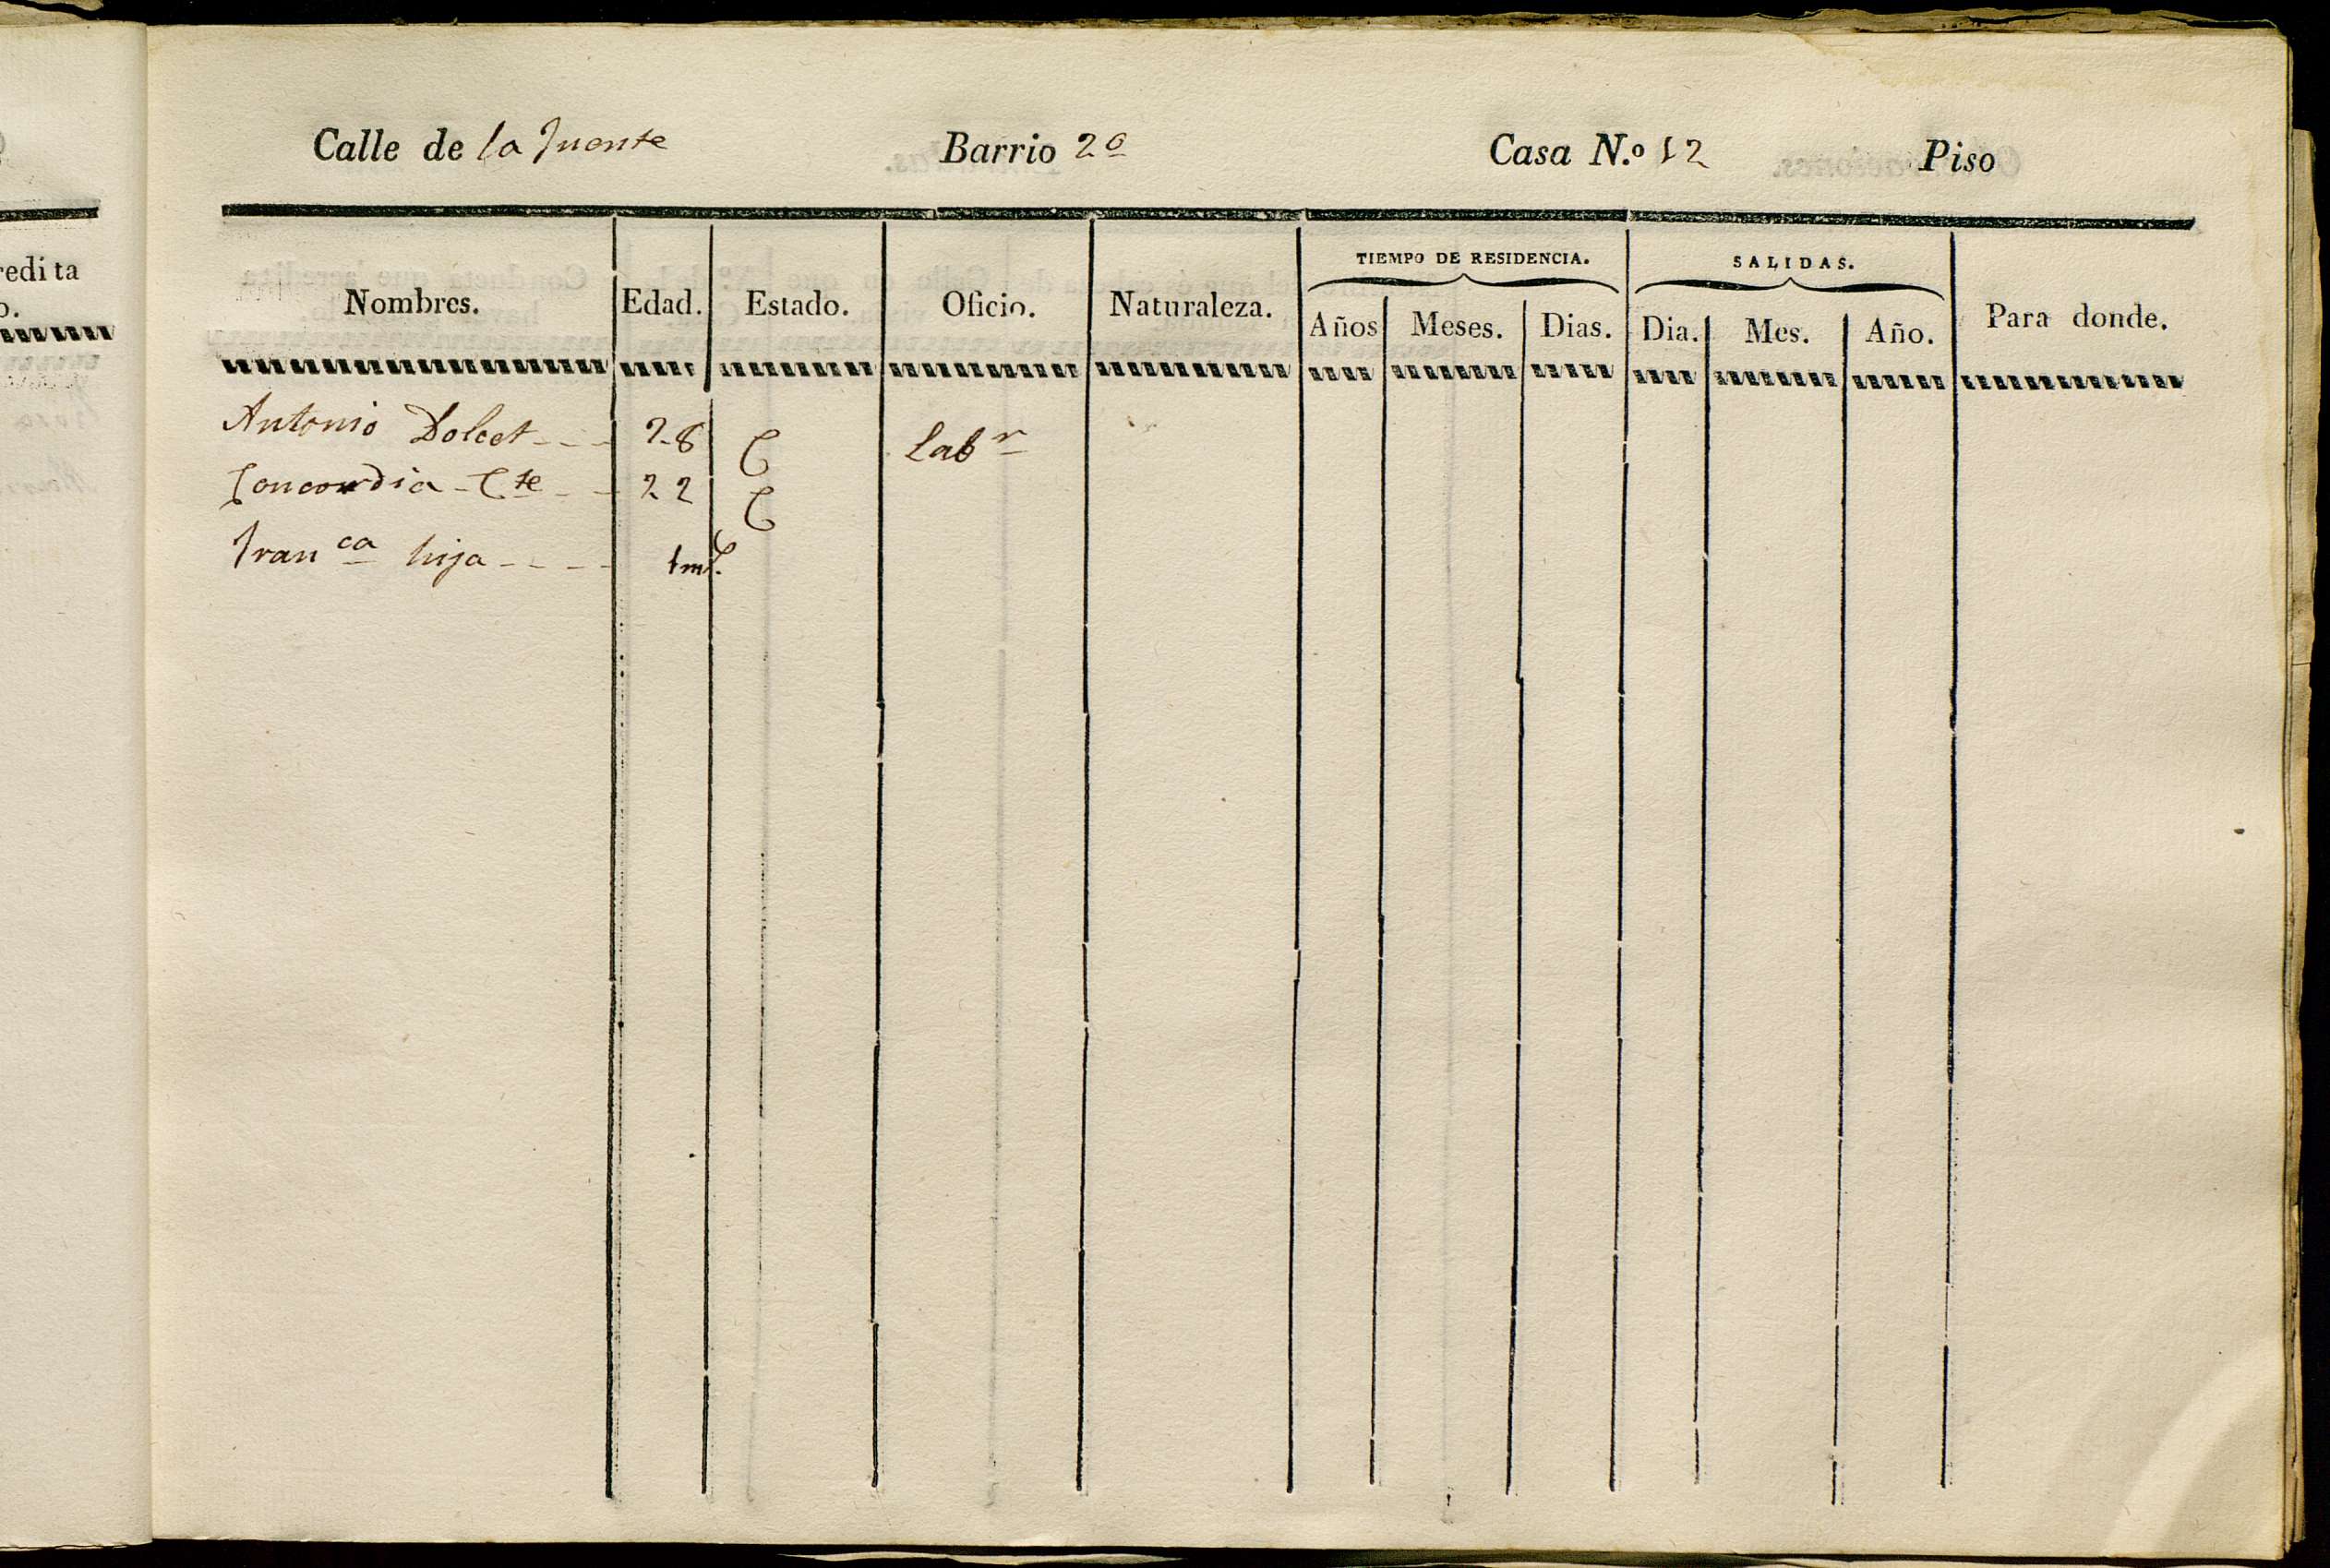 Calle de la Fuente Barrio 2º Casa N.º 12 Piso
TIEMPO DE RESIDENCIA. SALIDAS.
Nombres. Edad. Estado. Oficio. Naturaleza. Años Meses. Dias. Dia. Mes. Año. Para donde.
Antonio Dolcet 28 C Labr
Concordia Cte 22 C
Franca hija 1 m
redita
o.